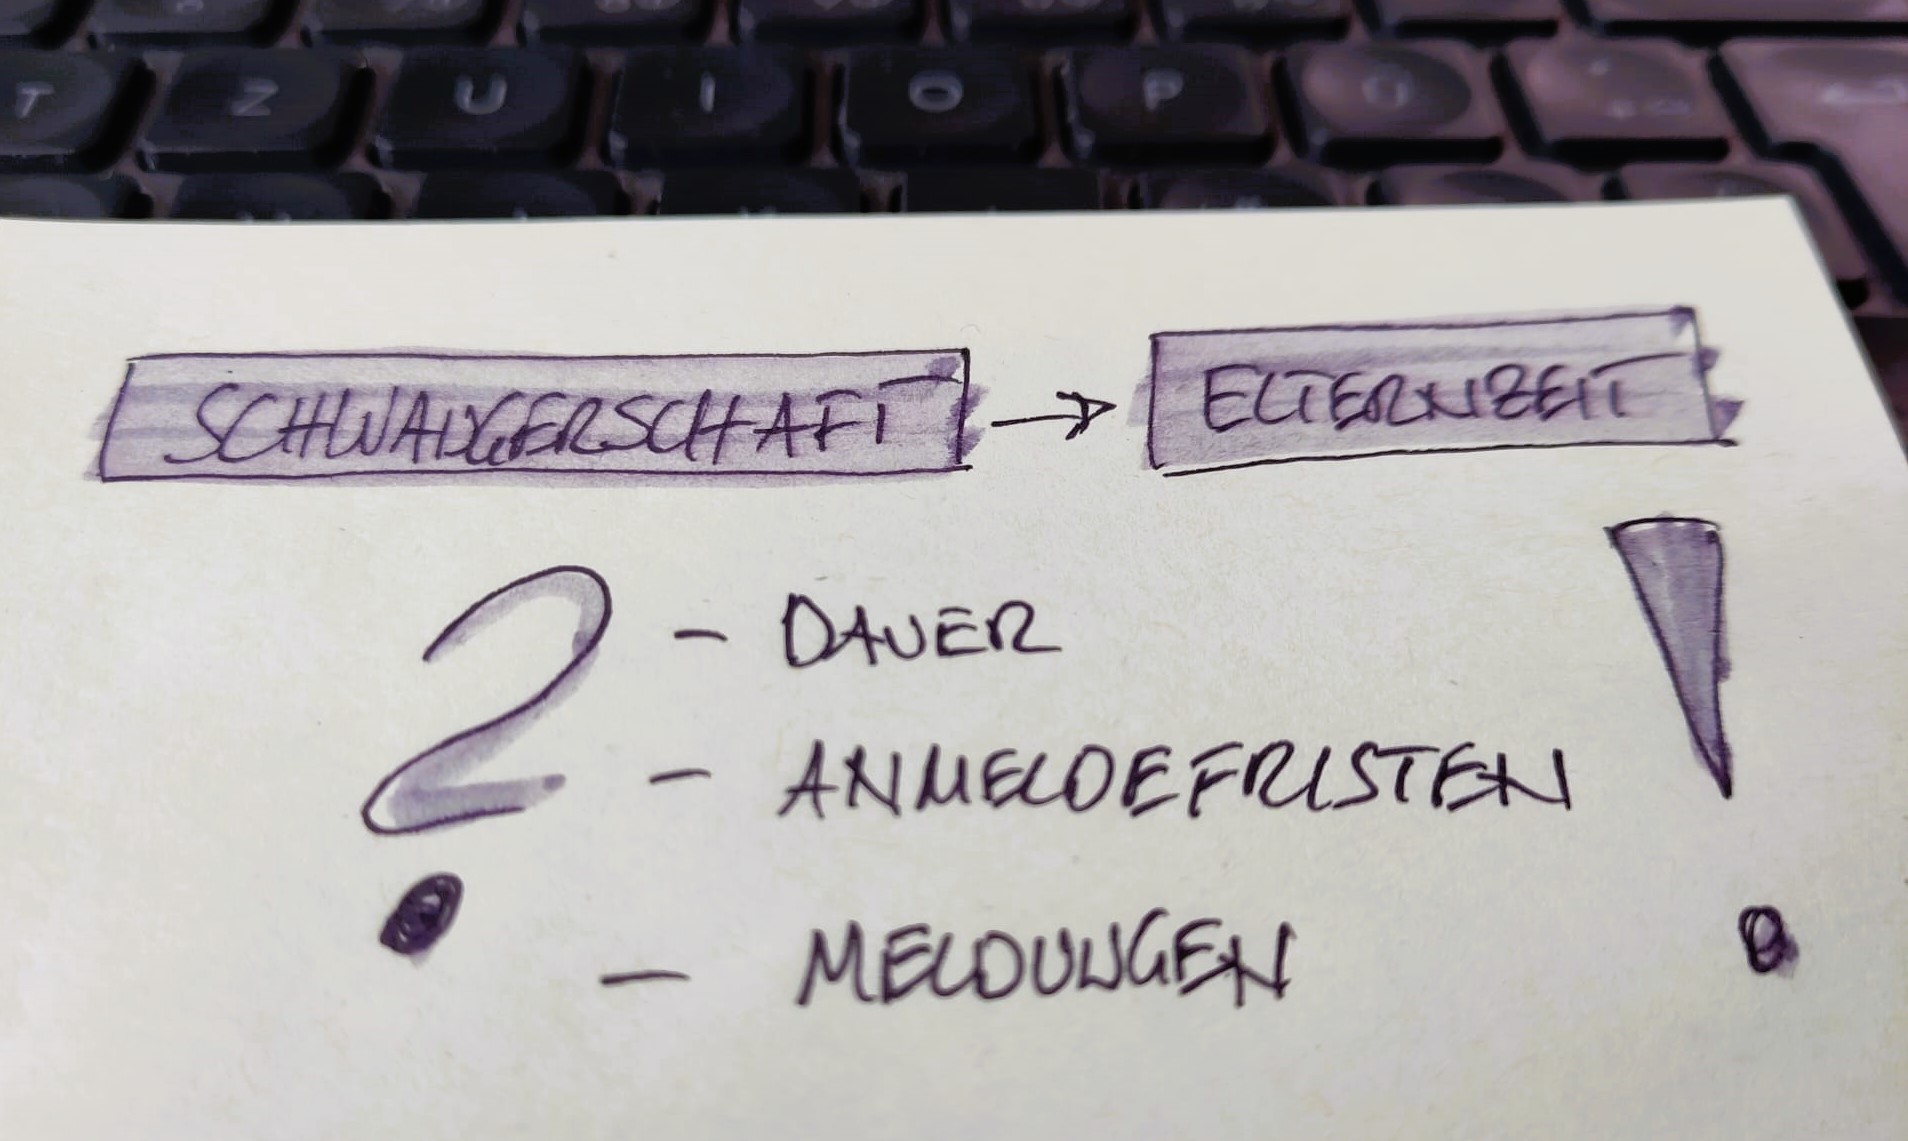 T Z U I O P Ü
SCHWANGERSCHAFT → ELTERNZEIT
? - DAUER !
- ANMELDEFRISTEN
- MELDUNGEN